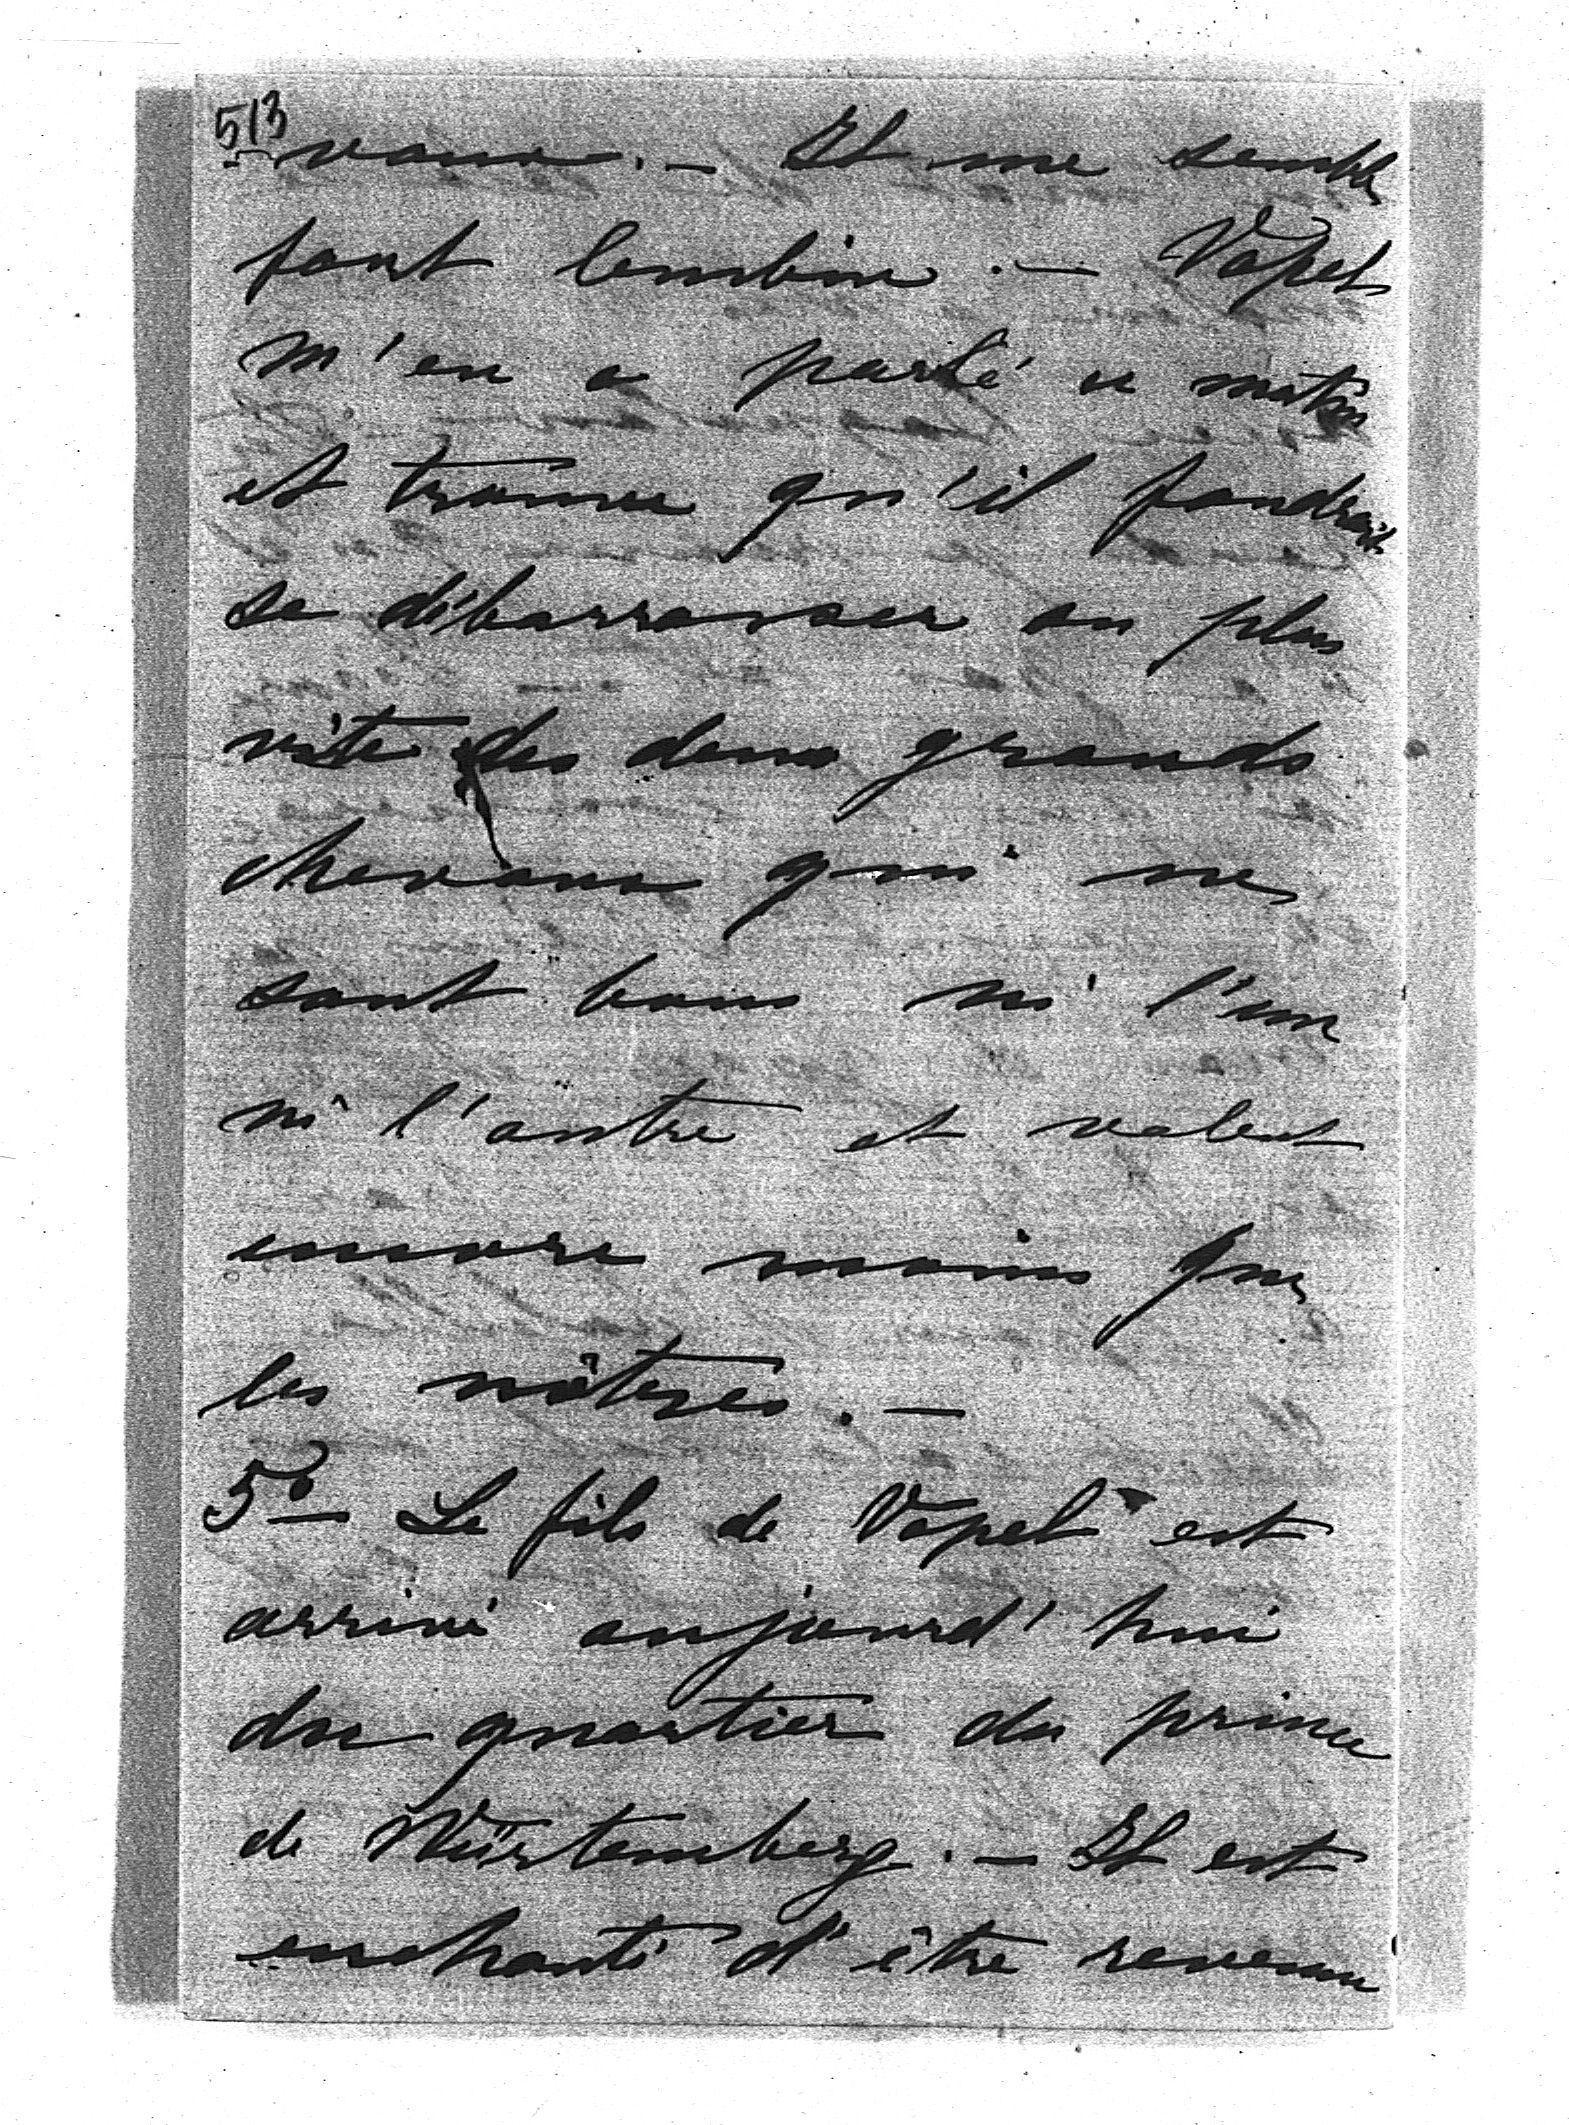 513
vaux. — Il me semble
fort lambin. — Vopel
m'en a parlé ce matin
et trouve qu'il faudrait
se débarrasser au plus
vite des deux grands
chevaux qui ne
sont bons ni l'un
ni l'autre et valent
encore moins que
les nôtres. —
5° — Le fils de Vopel est
arrivé aujourd'hui
du quartier du prince
de Würtemberg. — Il est
enchanté d'être revenu